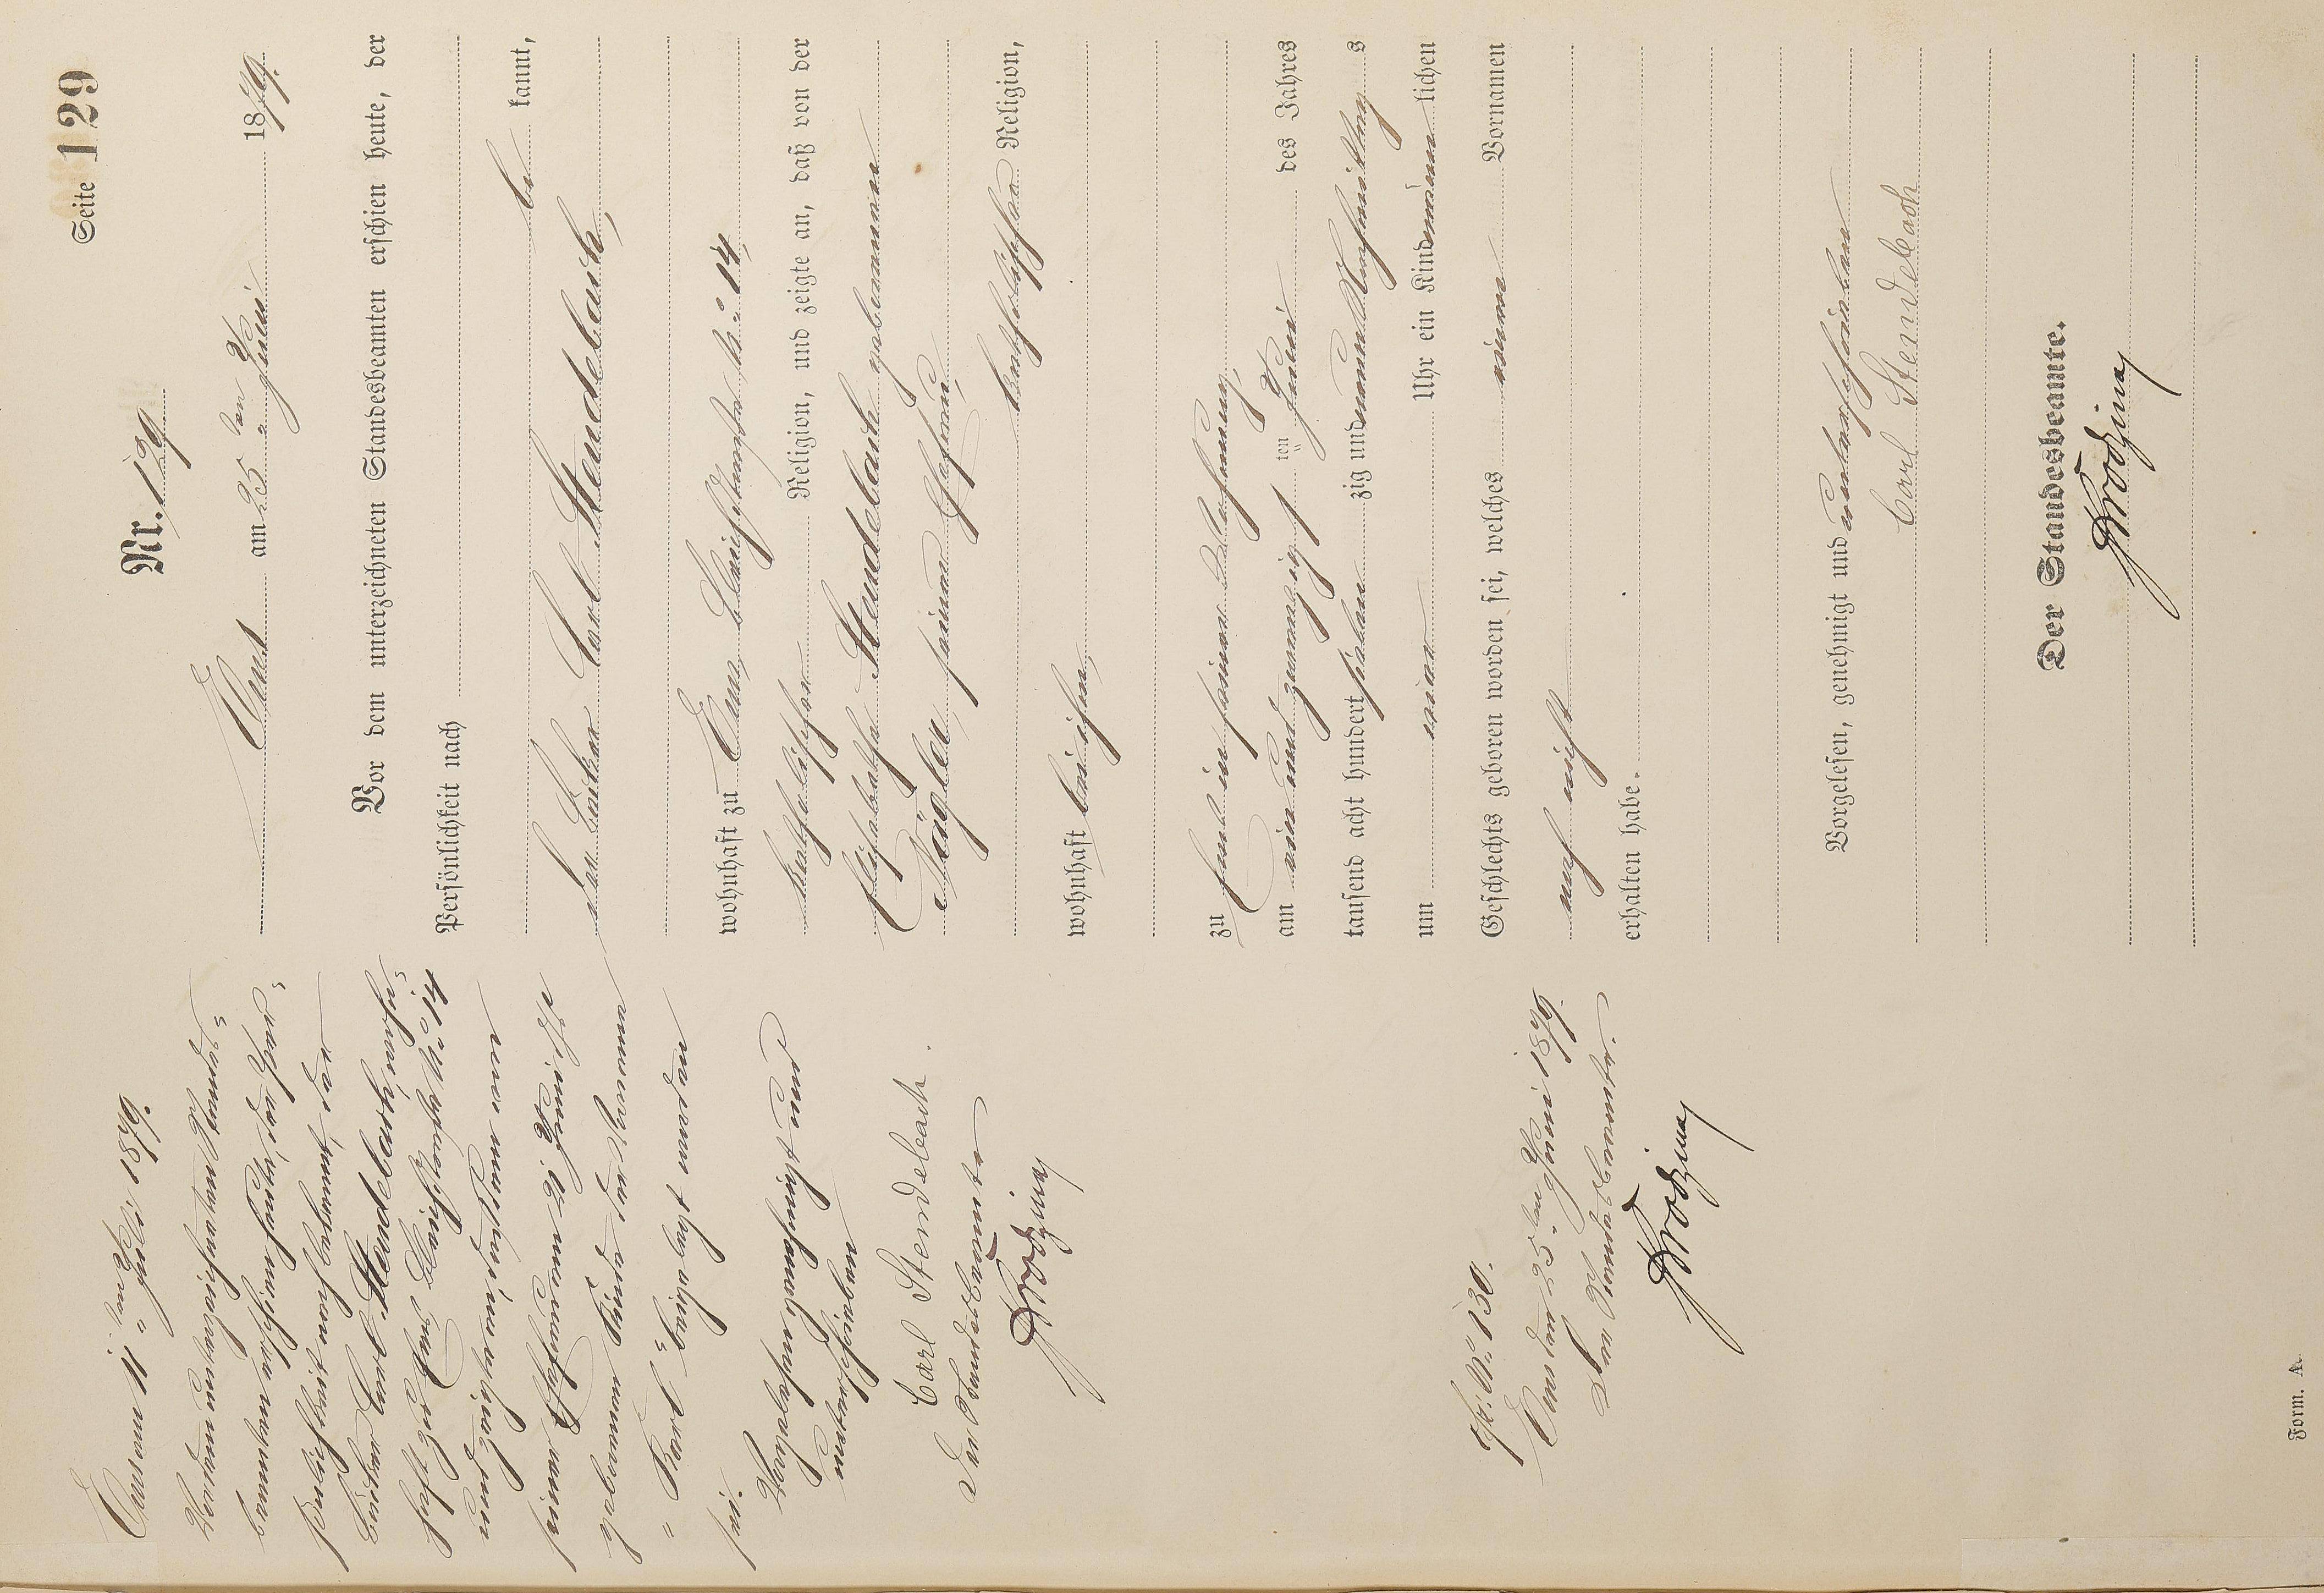 Seite 129
Nr. 129
Ems am 25ten Juni 1879.
Vor dem unterzeichneten Standesbeamten erschien heute, der
Persönlichkeit nach
be kannt,
der Bäcker Carl Stendebach,
wohnhaft zu Ems, Bleichstraße No 14,
katholischer Religion, und zeigte an, daß von der
Elisabetha Stendebach geborenen
Nägler, seiner Ehefrau,
katholischer Religion,
wohnhaft bei ihm,
zu Ems in seiner Wohnung,
am ein und zwanzigsten Juni des Jahres
tausend acht hundert sieben zig und neun Nachmittags
um neun Uhr ein Kind männlichen
Geschlechts geboren worden sei, welches einen Vornamen
noch nicht
erhalten habe.
Vorgelesen, genehmigt und unterschrieben
Carl Stendebach
Der Standesbeamte.
Ems am 11ten Juli 1879.
Vor dem unterzeichneten Standes-
beamten erschien heute, der Per-
sönlichkeit nach bekannt, der
Bäcker Carl Stendebach, wohn-
haft zu Ems, Bleichstraße No 14
und zeigte an, daß dem von
seiner Ehefrau am 21. Juni 1879
geborenen Kinde der Vorname
"Karl" beigelegt worden
sei.
Vorgelesen, genehmigt und
unterschrieben
Carl Stendebach.
Der Standesbeamte
No 130.
Ems den 25ten Juni 1879.
Der Standesbeamte.
Form. A.